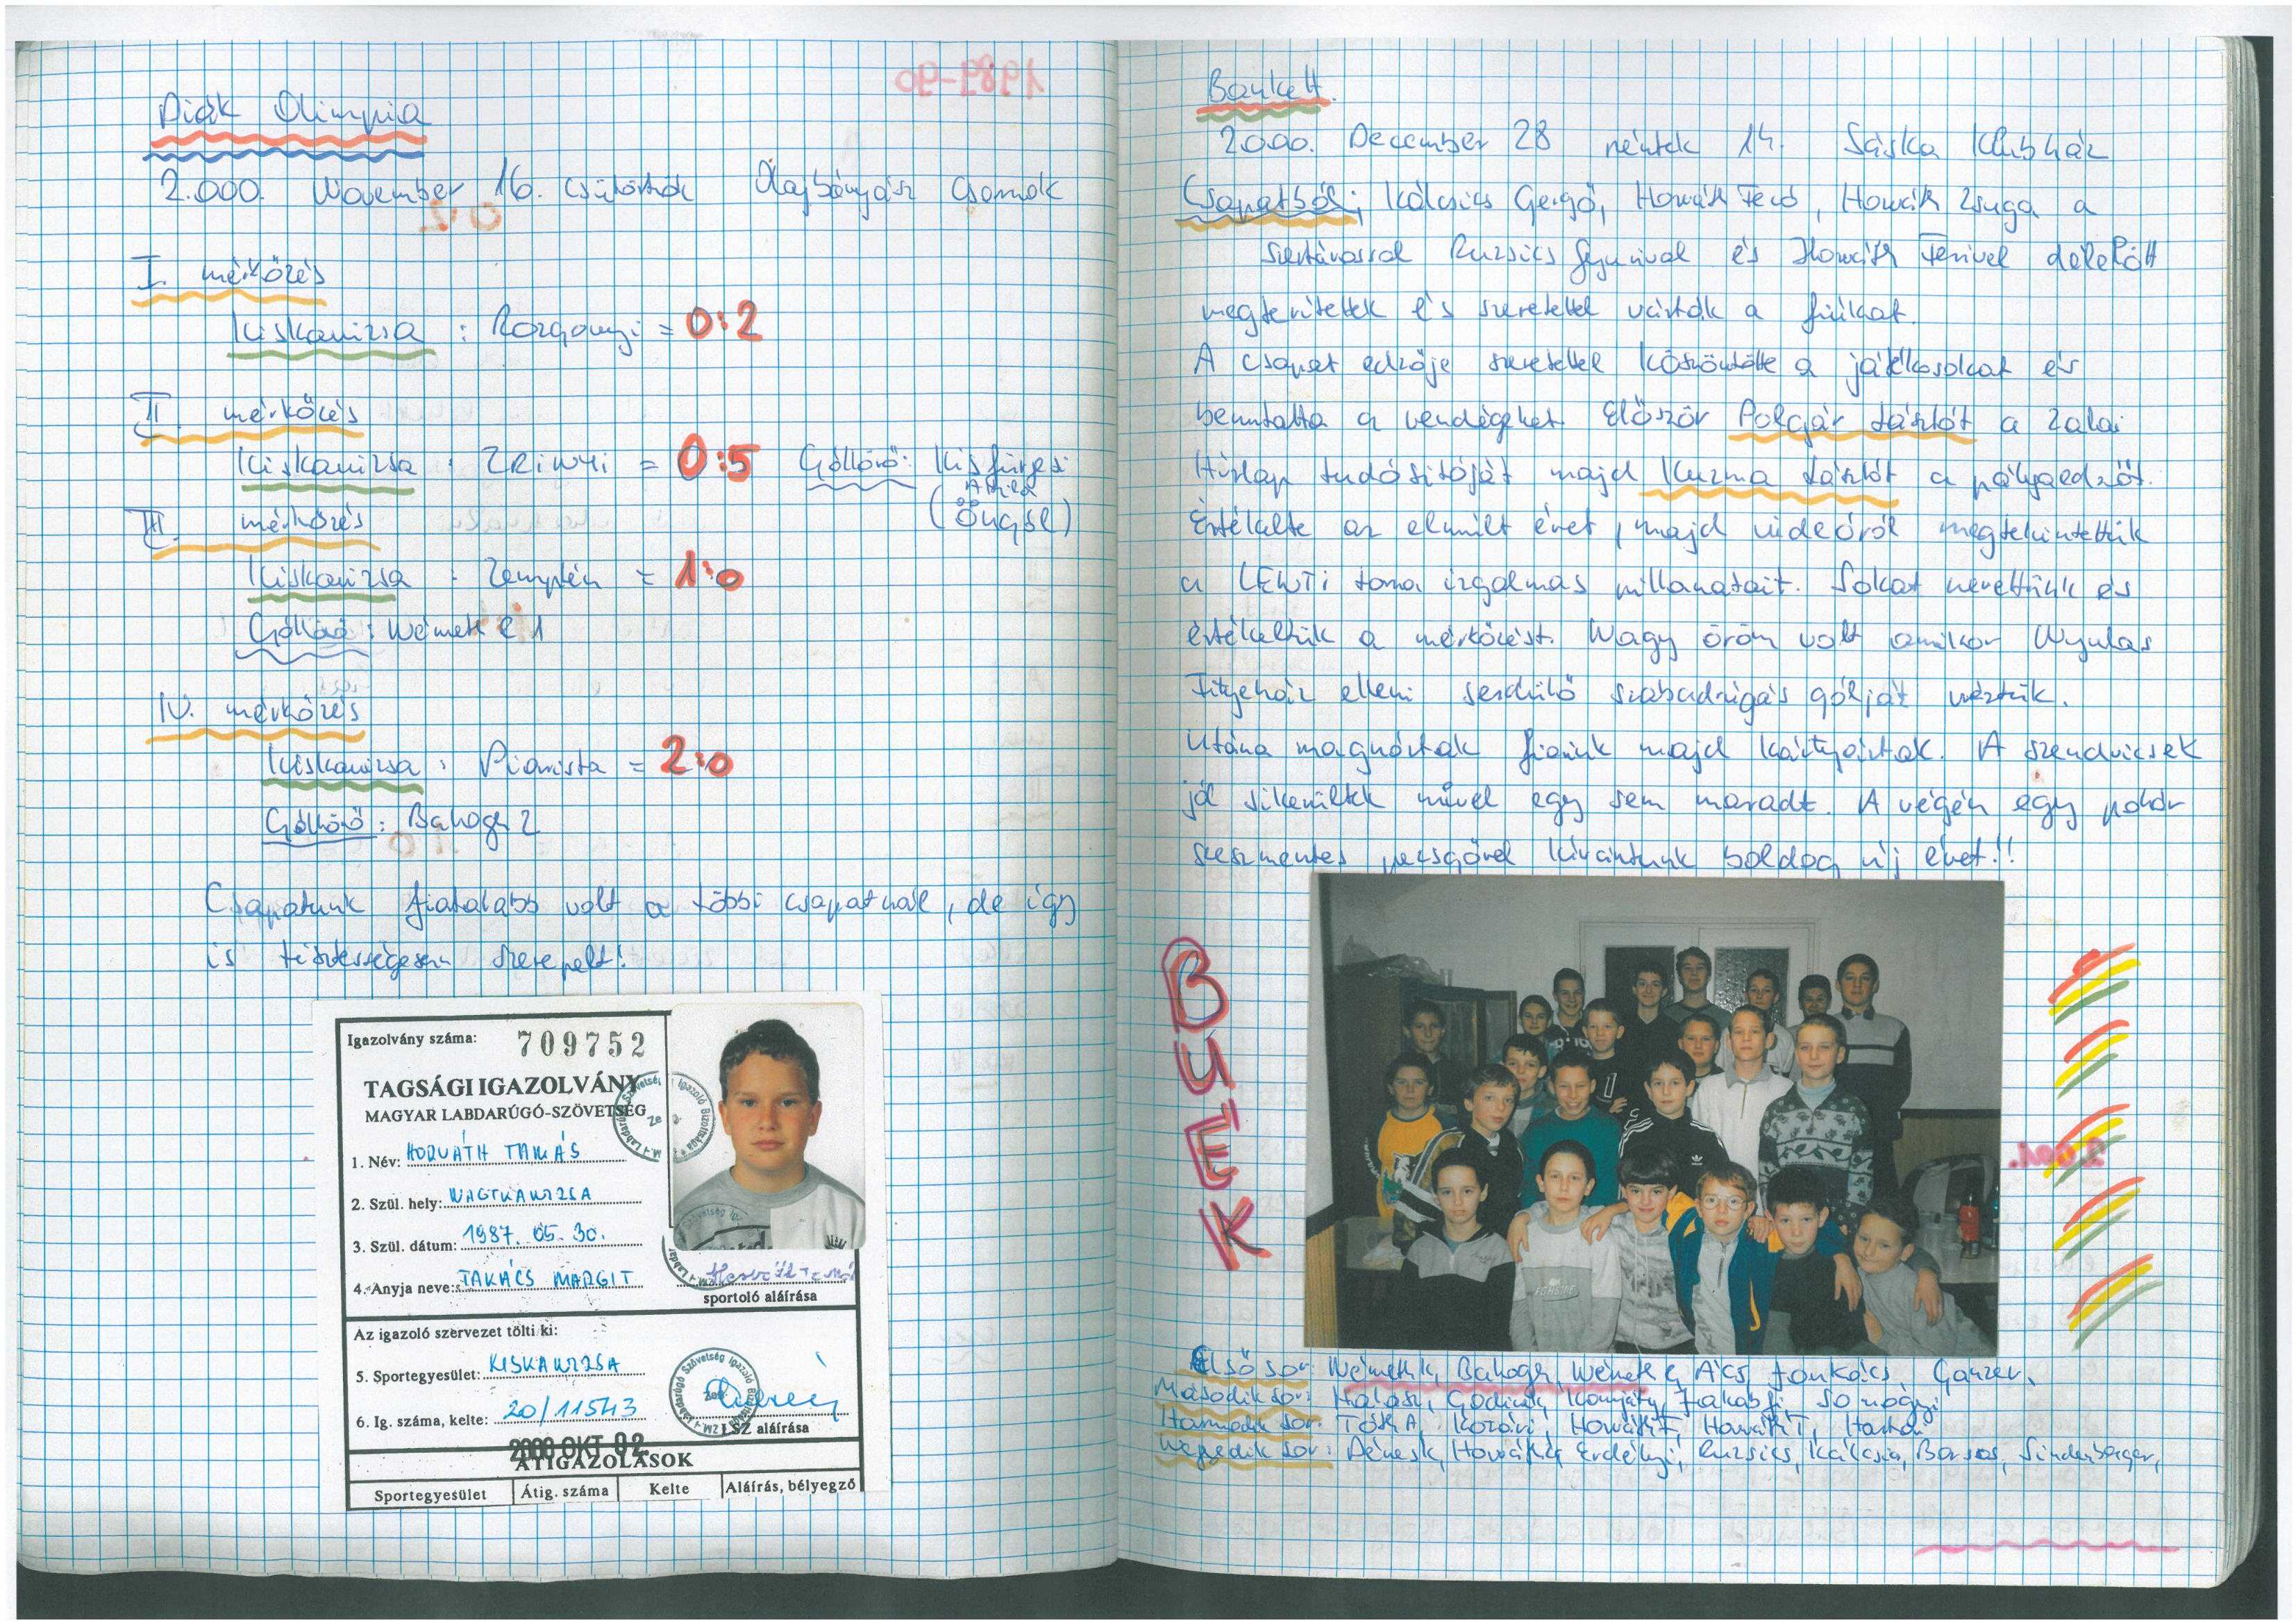 Diák Olimpia
2.000. November 16. csütörtök Olajbányász csarnok
I. mérkőzés
Kiskanizsa : Rozgonyi = 0:2
II. mérkőzés
Kiskanizsa : ZRINYI = 0:5 Góllövő: Kisfürjesi
Attila
(Öngól)
III. mérkőzés
Kiskanizsa : Zemplén = 1:0
Góllövő: Németh E 1
IV. mérkőzés
Kiskanizsa : Piarista = 2:0
Góllövő: Balogh 2
Csapatunk fiatalabb volt a többi csapatnál, de így
is tisztességesen szerepelt!
Igazolvány száma: 709752
TAGSÁGI IGAZOLVÁNY
MAGYAR LABDARÚGÓ-SZÖVETSÉG
1. Név: HORVÁTH TAMÁS
2. Szül. hely: NAGYKANIZSA
3. Szül. dátum: 1987. 05. 30.
4. Anyja neve: TAKÁCS MARGIT
sportoló aláírása
Az igazoló szervezet tölti ki:
5. Sportegyesület: KISKANIZSA
6. Ig. száma, kelte: 20/11543
LSZ aláírása
2000 OKT 02
ÁTIGAZOLÁSOK
Sportegyesület Átig. száma Kelte Aláírás, bélyegző
1989-90
Bankett.
2.000. December 28 péntek 14. Sáska Klubház
Csapatból; Kálcsics Gergő, Horváth Fecó, Horváth Zsuga a
szertárossal Ruzsics Gyurival és Horváth Ferivel délelőtt
megterítettek és szeretettel várták a fiúkat.
A csapat edzője szeretettel köszöntötte a játékosokat és
bemutatta a vendégeket. Először Polgár Lászlót a Zalai
Hírlap tudósítóját majd Kuzma Lászlót a pályaedzőt.
Értékelte az elmúlt évet, majd videóról megtekintettük
a LENTI torna izgalmas pillanatait. Sokat nevettünk és
értékeltük a mérkőzést. Nagy öröm volt amikor Nyulas
Fityeház elleni serdülő szabadrúgás gólját néztük.
Utána magnóztak fiaink majd kártyáztak. A szendvicsek
jól sikerültek mivel egy sem maradt. A végén egy pohár
szeszmentes pezsgővel kívántunk boldog új évet!!
BUÉK
Első sor: Németh K, Balogh, Németh E, Ács, Fonkács, Ganzer,
Második sor: Halász, Godina, Komjáty, Jakabfi, Somogyi
Harmadik sor: Tóth A, Kozári, Horváth T, Horváth T, Hartai
Negyedik sor: Dénes K, Horváth G, Erdélyi, Ruzsics, Kálcsics, Borsos, Sinderberger,